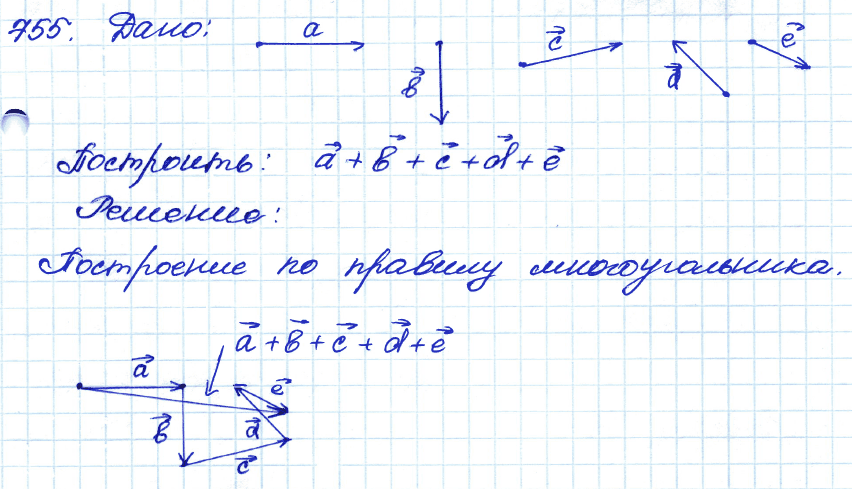 755. Дано: a b⃗ c⃗ d⃗ e⃗
Построить: a⃗ + b⃗ + c⃗ + d⃗ + e⃗
Решение:
Построение по правилу многоугольника.
a⃗ + b⃗ + c⃗ + d⃗ + e⃗
a⃗ e⃗
b⃗ d⃗
c⃗